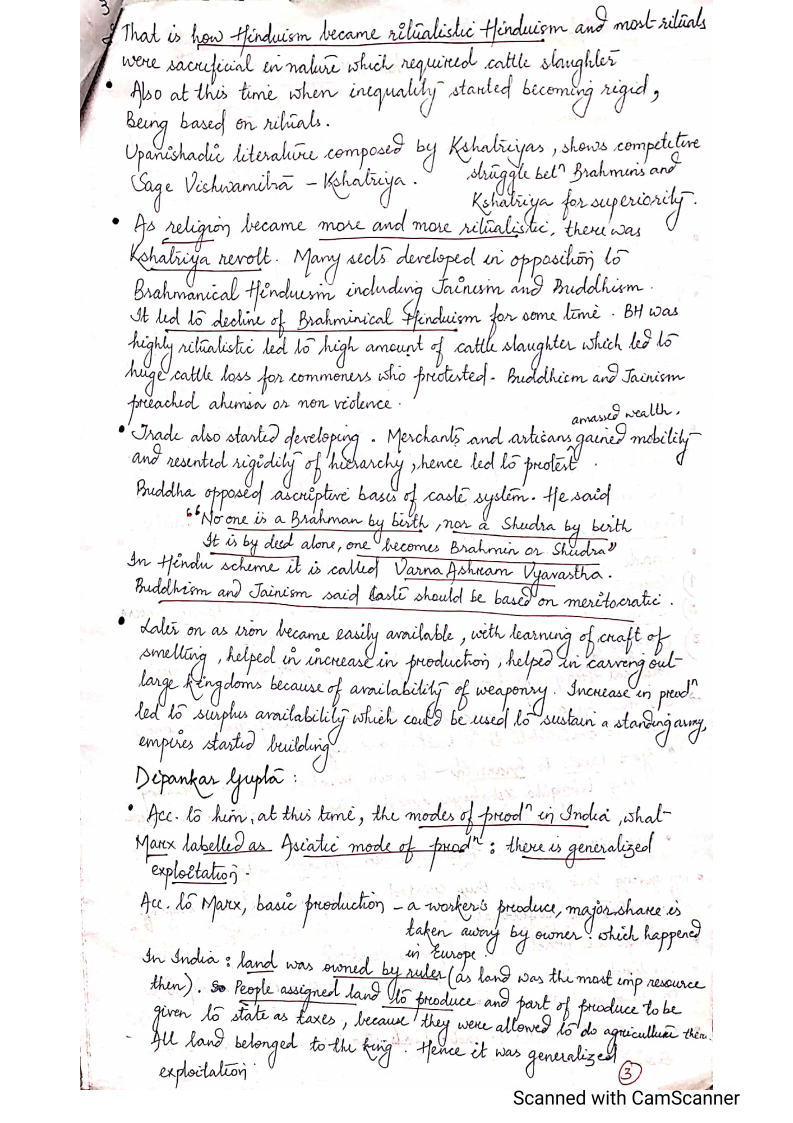 3
That is how Hinduism became ritualistic Hinduism and most rituals
were sacrificial in nature which required cattle slaughter
• Also at this time when inequality started becoming rigid,
Being based on rituals.
Upanishadic literature composed by Kshatriyas, shows competitive
(Sage Vishwamitra – Kshatriya. struggle betⁿ Brahmins and
Kshatriya for superiority.
• As religion became more and more ritualistic, there was
Kshatriya revolt. Many sects developed in opposition to
Brahmanical Hinduism including Jainism and Buddhism.
It led to decline of Brahminical Hinduism for some time. BH was
highly ritualistic led to high amount of cattle slaughter which led to
huge cattle loss for commoners who protested. Buddhism and Jainism
preached ahimsa or non violence.
amassed wealth,
• Trade also started developing. Merchants and artisans ^ gained mobility
and resented rigidity of hierarchy, hence led to protest.
Buddha opposed ascriptive basis of caste system. He said
"No one is a Brahman by birth, nor a Shudra by birth
It is by deed alone, one becomes Brahmin or Shudra"
In Hindu scheme it is called Varna Ashram Vyavastha.
Buddhism and Jainism said caste should be based on meritocratic.
• Later on as iron became easily available, with learning of craft of
smelting, helped in increase in production, helped in carving out
large kingdoms because of availability of weaponry. Increase in prodⁿ
led to surplus availability which could be used to sustain a standing army,
empires started building.
Dipankar Gupta :
• Acc. to him, at this time, the modes of prodⁿ in India, what
Marx labelled as Asiatic mode of prodⁿ : there is generalized
exploitation.
Acc. to Marx, basic production – a worker's produce, major share is
taken away by owner. which happened
in Europe.
In India : land was owned by ruler (as land was the most imp resource
then). So People assigned land to produce and part of produce to be
given to state as taxes, because they were allowed to do agriculture then.
All land belonged to the king. Hence it was generalized
exploitation.
3
Scanned with CamScanner